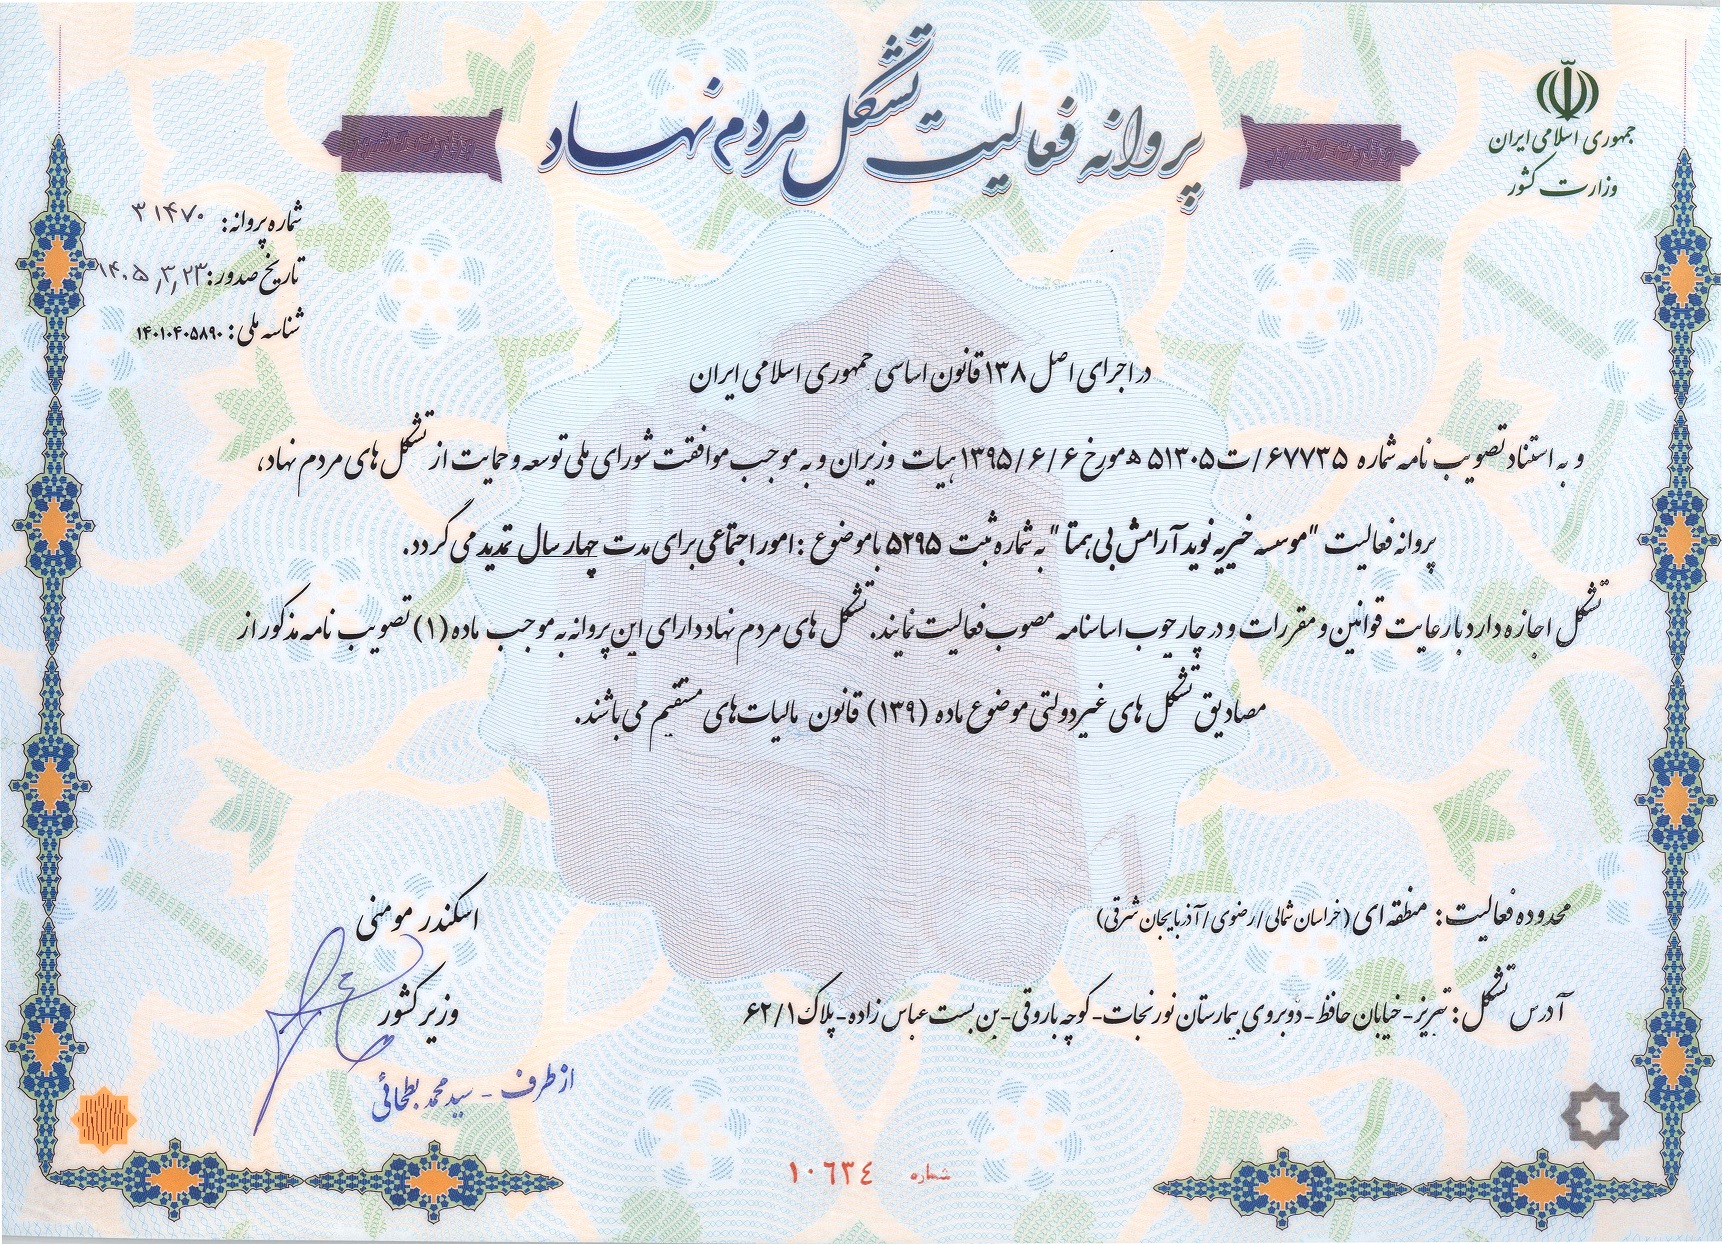 جمهوری اسلامی ایران
وزارت کشور
پروانه فعالیت تشکل مردم نهاد
شماره پروانه: ۳۱۴۷۰
تاریخ صدور: ۱۴۰۵/۳/۲۳
شناسه ملی: ۱۴۰۱۰۴۰۵۸۹۰
در اجرای اصل ۱۳۸ قانون اساسی جمهوری اسلامی ایران
و به استناد تصویب نامه شماره ۶۷۷۳۵/ت۵۱۳۰۵ه مورخ ۱۳۹۵/۶/۶ هیات وزیران و به موجب موافقت شورای ملی توسعه و حمایت از تشکل های مردم نهاد،
پروانه فعالیت "موسسه خیریه نوید آرامش بی همتا" به شماره ثبت ۵۲۹۵ با موضوع: امور اجتماعی برای مدت چهار سال تمدید می گردد.
تشکل اجازه دارد با رعایت قوانین و مقررات و در چارچوب اساسنامه مصوب فعالیت نمایند. تشکل های مردم نهاد دارای این پروانه به موجب ماده (۱) تصویب نامه مذکور از
مصادیق تشکل های غیردولتی موضوع ماده (۱۳۹) قانون مالیات‌های مستقیم می باشند.
محدوده فعالیت: منطقه ای (خراسان شمالی/رضوی/آذربایجان شرقی)
آدرس تشکل: تبریز-خیابان حافظ-روبروی بیمارستان نور نجات-کوچه باروقی-بن بست عباس زاده-پلاک ۶۲/۱
اسکندر مومنی
وزیر کشور
از طرف - سید محمد بطحائی
شماره ۱۰۶۳۴